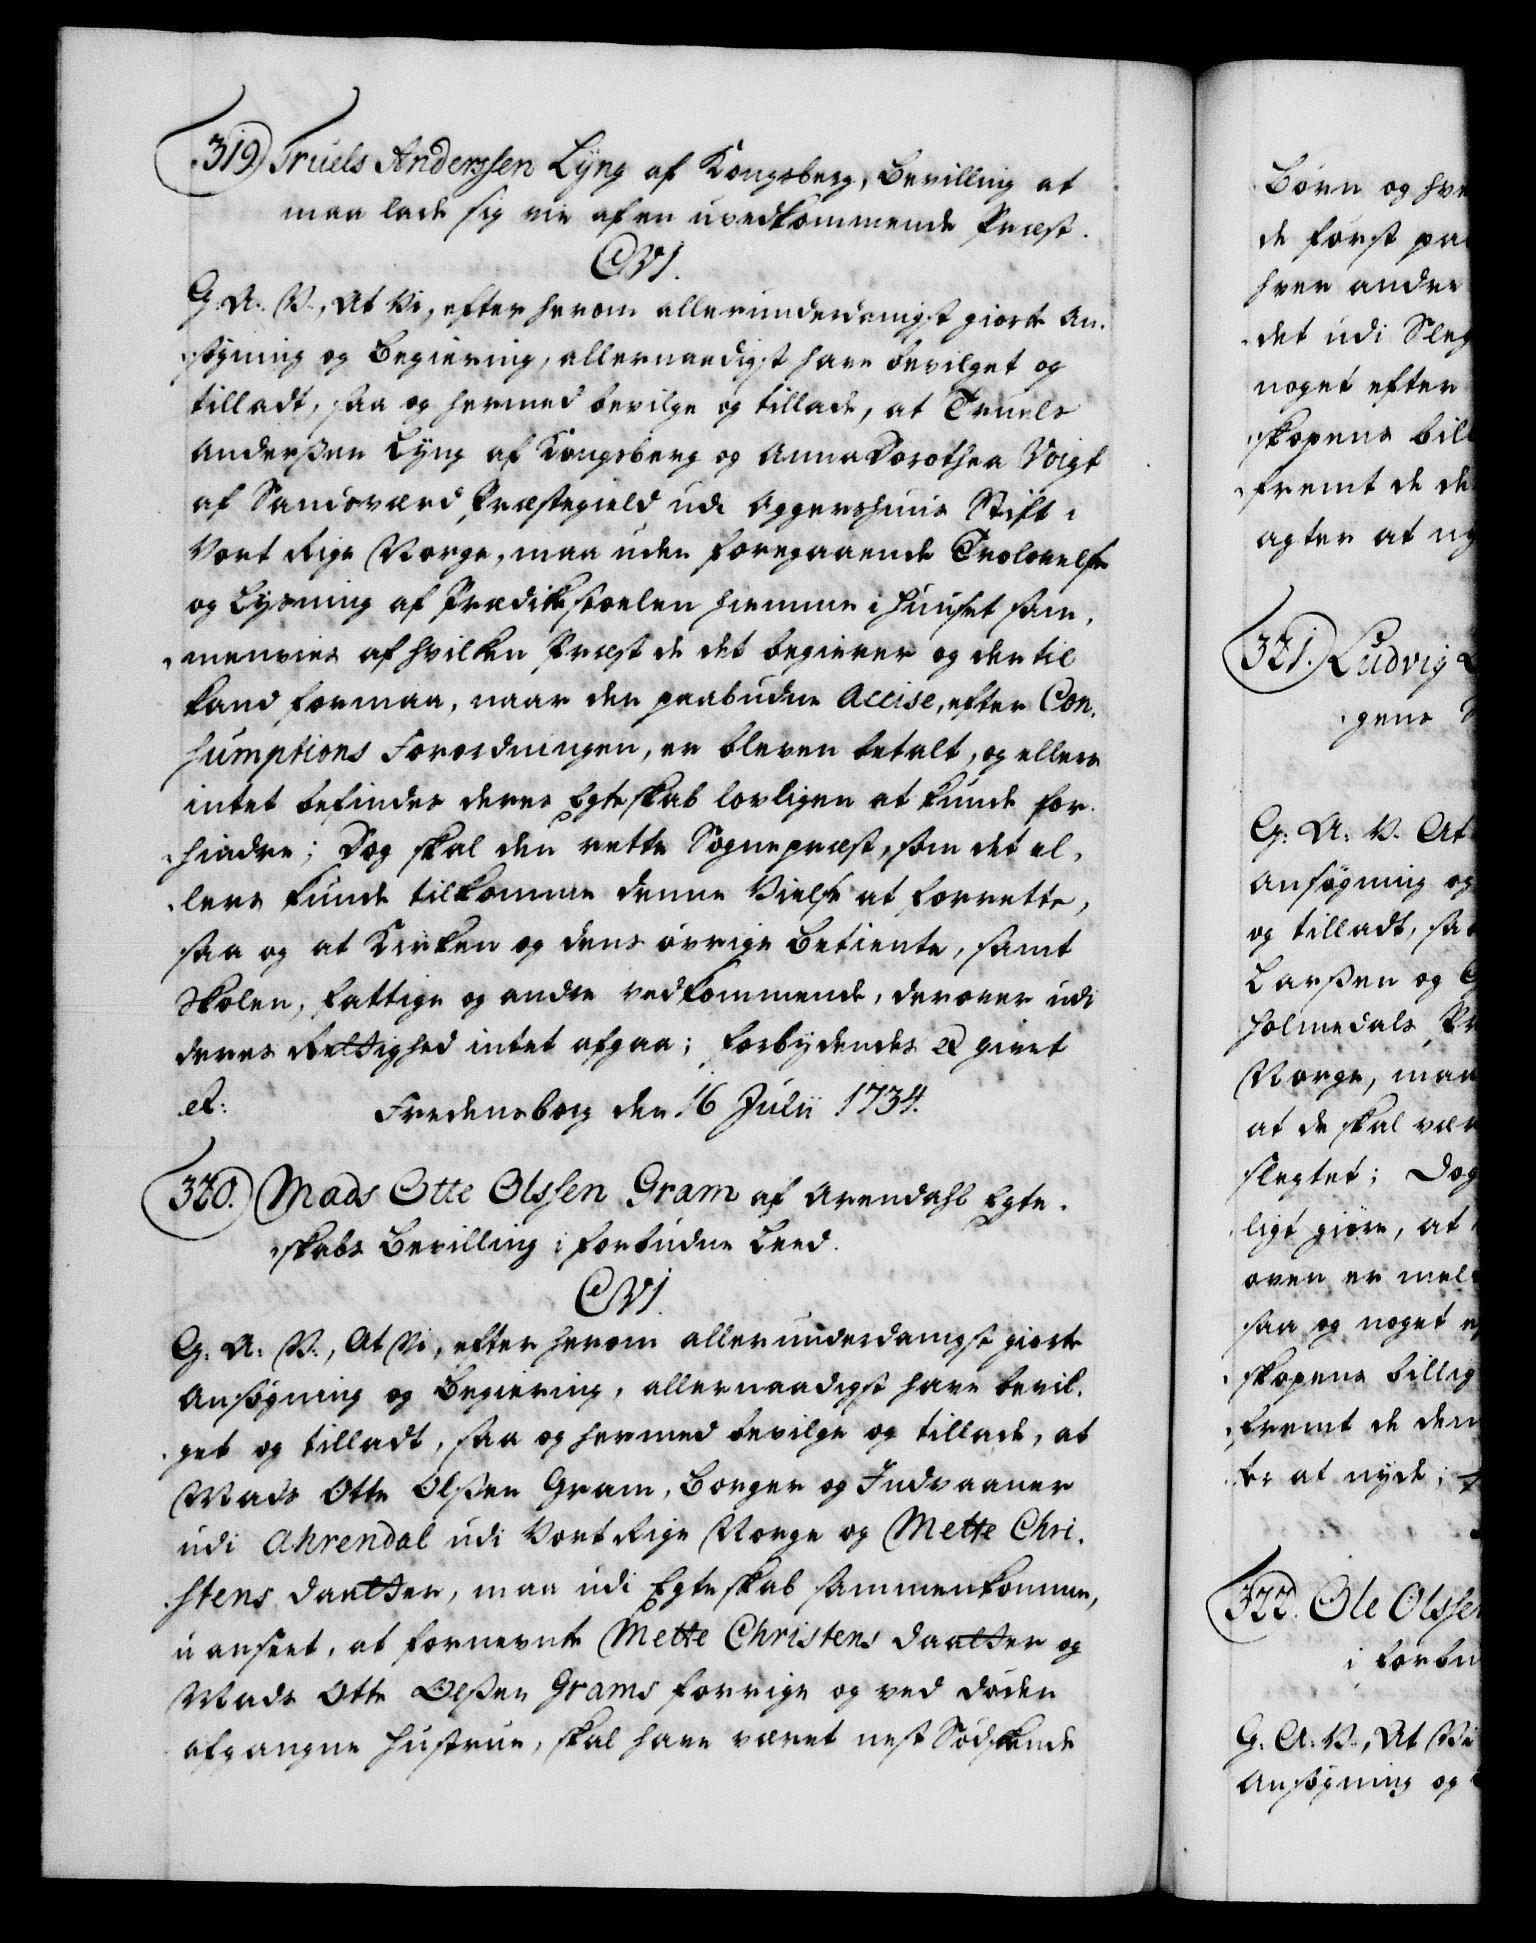 319. Truels Anderssen Lÿng af Kongsberg, Bevilling at
maa lade sig vie af en uvedkommende Præst.
CVI.
G. A. V., At Vi, efter herom allerunderdanigst giorte An-
søgning og Begiering, allernaadigst have bevilget og
tilladt, saa og hermed bevilge og tillade, at Truels
Anderssen Lÿng af Kongsberg og Anna Dorothea Voigt
af Sandsværd Præstegield udi Aggershuus Stift i
Vort Rige Norge, maa uden foregaaende Trolovelse
og Lysning af Prædikestoelen hiemme i Huuset sam-
menvies af hvilken Præst de det begierer og dertil
kand formaa, naar den paabudne Accise, efter Con-
sumptions Forordningen, er bleven betalt, og ellers
intet befindes deres Egteskab lovligen at kunde for-
hindre; Dog skal den rette Sognepræst, som det el-
lers kunde tilkomme denne Vielse at forrette,
saa og at Kirken og dens øvrige Betiente, samt
Skolen, fattige og andre vedkommende, derover udi
deres Rettighed intet afgaa; Forbydendes &c givet
&c: Fredensborg den 16 Julii 1734.
320. Mads Otte Olssen Gram af Arendahl Egte-
skabs Bevilling i forbudne Leed.
CVI.
G. A. V., At Vi, efter herom allerunderdanigst giorte
Ansøgning og Begiering, allernaadigst have bevil-
get og tilladt, saa og hermed bevilge og tillade, at
Mads Otte Olssen Gram, Borger og Indvaaner
udi Ahrendal udi Vort Rige Norge og Mette Chri-
stens Daatter, maa udi Egteskab sammenkomme,
uanseet, at fornevnte Mette Christens Daatter og
Mads Otte Olssen Grams forrige og ved døden
afgangne Hustrue, skal have været nest Sødskende
Børn og hve
de først paa
hver andre
det udi Sleg
noget efter
skopens bill
fremt de de
agter at ny
321. Ludvig L
gens
G: A: V. At
Ansøgning og
og tilladt, saa
Larssen og
Holmedals Pr
Norge, maa
at de skal vær
slegtet; Dog
ligt giøre, at
oven er mel
saa og noget ef
skopens billig
fremt de dem
ter at nyde;
322. Ole Olssen
i forbu
G. A. V., At Vi
Ansøgning og